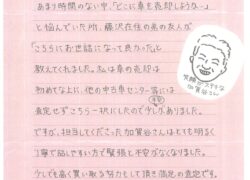 あまり時間のない中、「どこに車を売却しような…」
と悩んでいた所、藤沢在住の兄の友人が
「こちらにお世話になって良かった」と
教えてくれました。私は車の売却は
初めてな上に、他の中古車センター等には
査定せずこちら一択にしたので少し不安ありました。
ですが、担当してくださった加賀谷さんはとても明るく
丁寧で話しやすい方で緊張と不安がなくなりました。
少しでも高く買い取る努力をして頂き満足の査定です。
笑顔がステキな
加賀谷さん